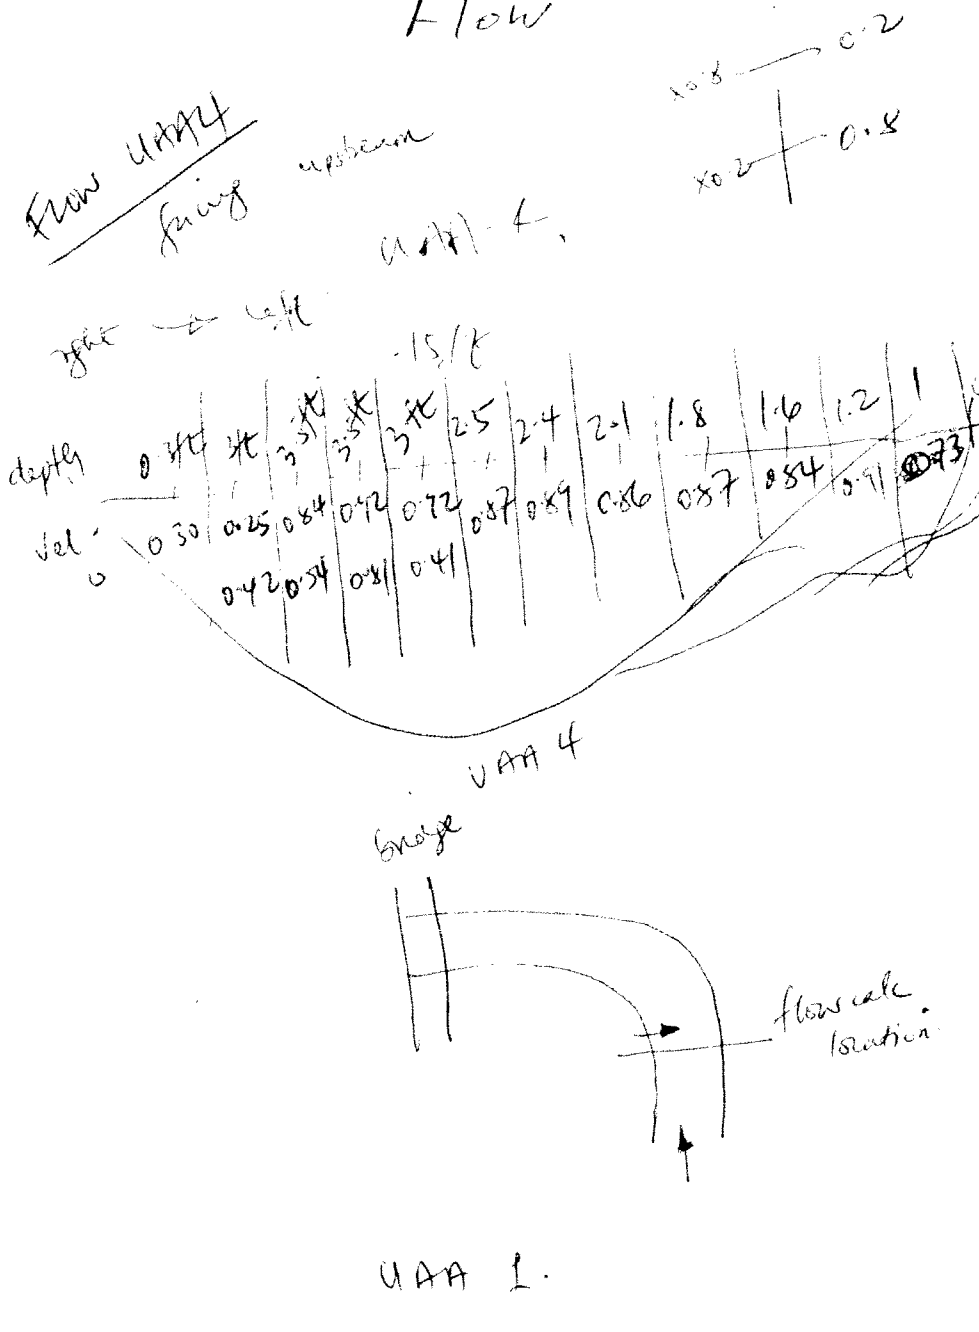 Flow
x0.8 0.2
x0.2 0.8
Flow UAA4
facing upstream
UAA-4
right → left
.15/t
depth 0 3ft 3ft 3.5ft 3.5ft 3ft 2.5 2.4 2.1 1.8 1.6 1.2 1
vel. 0 0.30 0.25 0.84 0.92 0.72 0.87 0.89 0.86 0.87 0.84 0.91 0.73
0.42 0.54 0.81 0.41
UAA 4
bridge
flow calc
location
UAA 1.